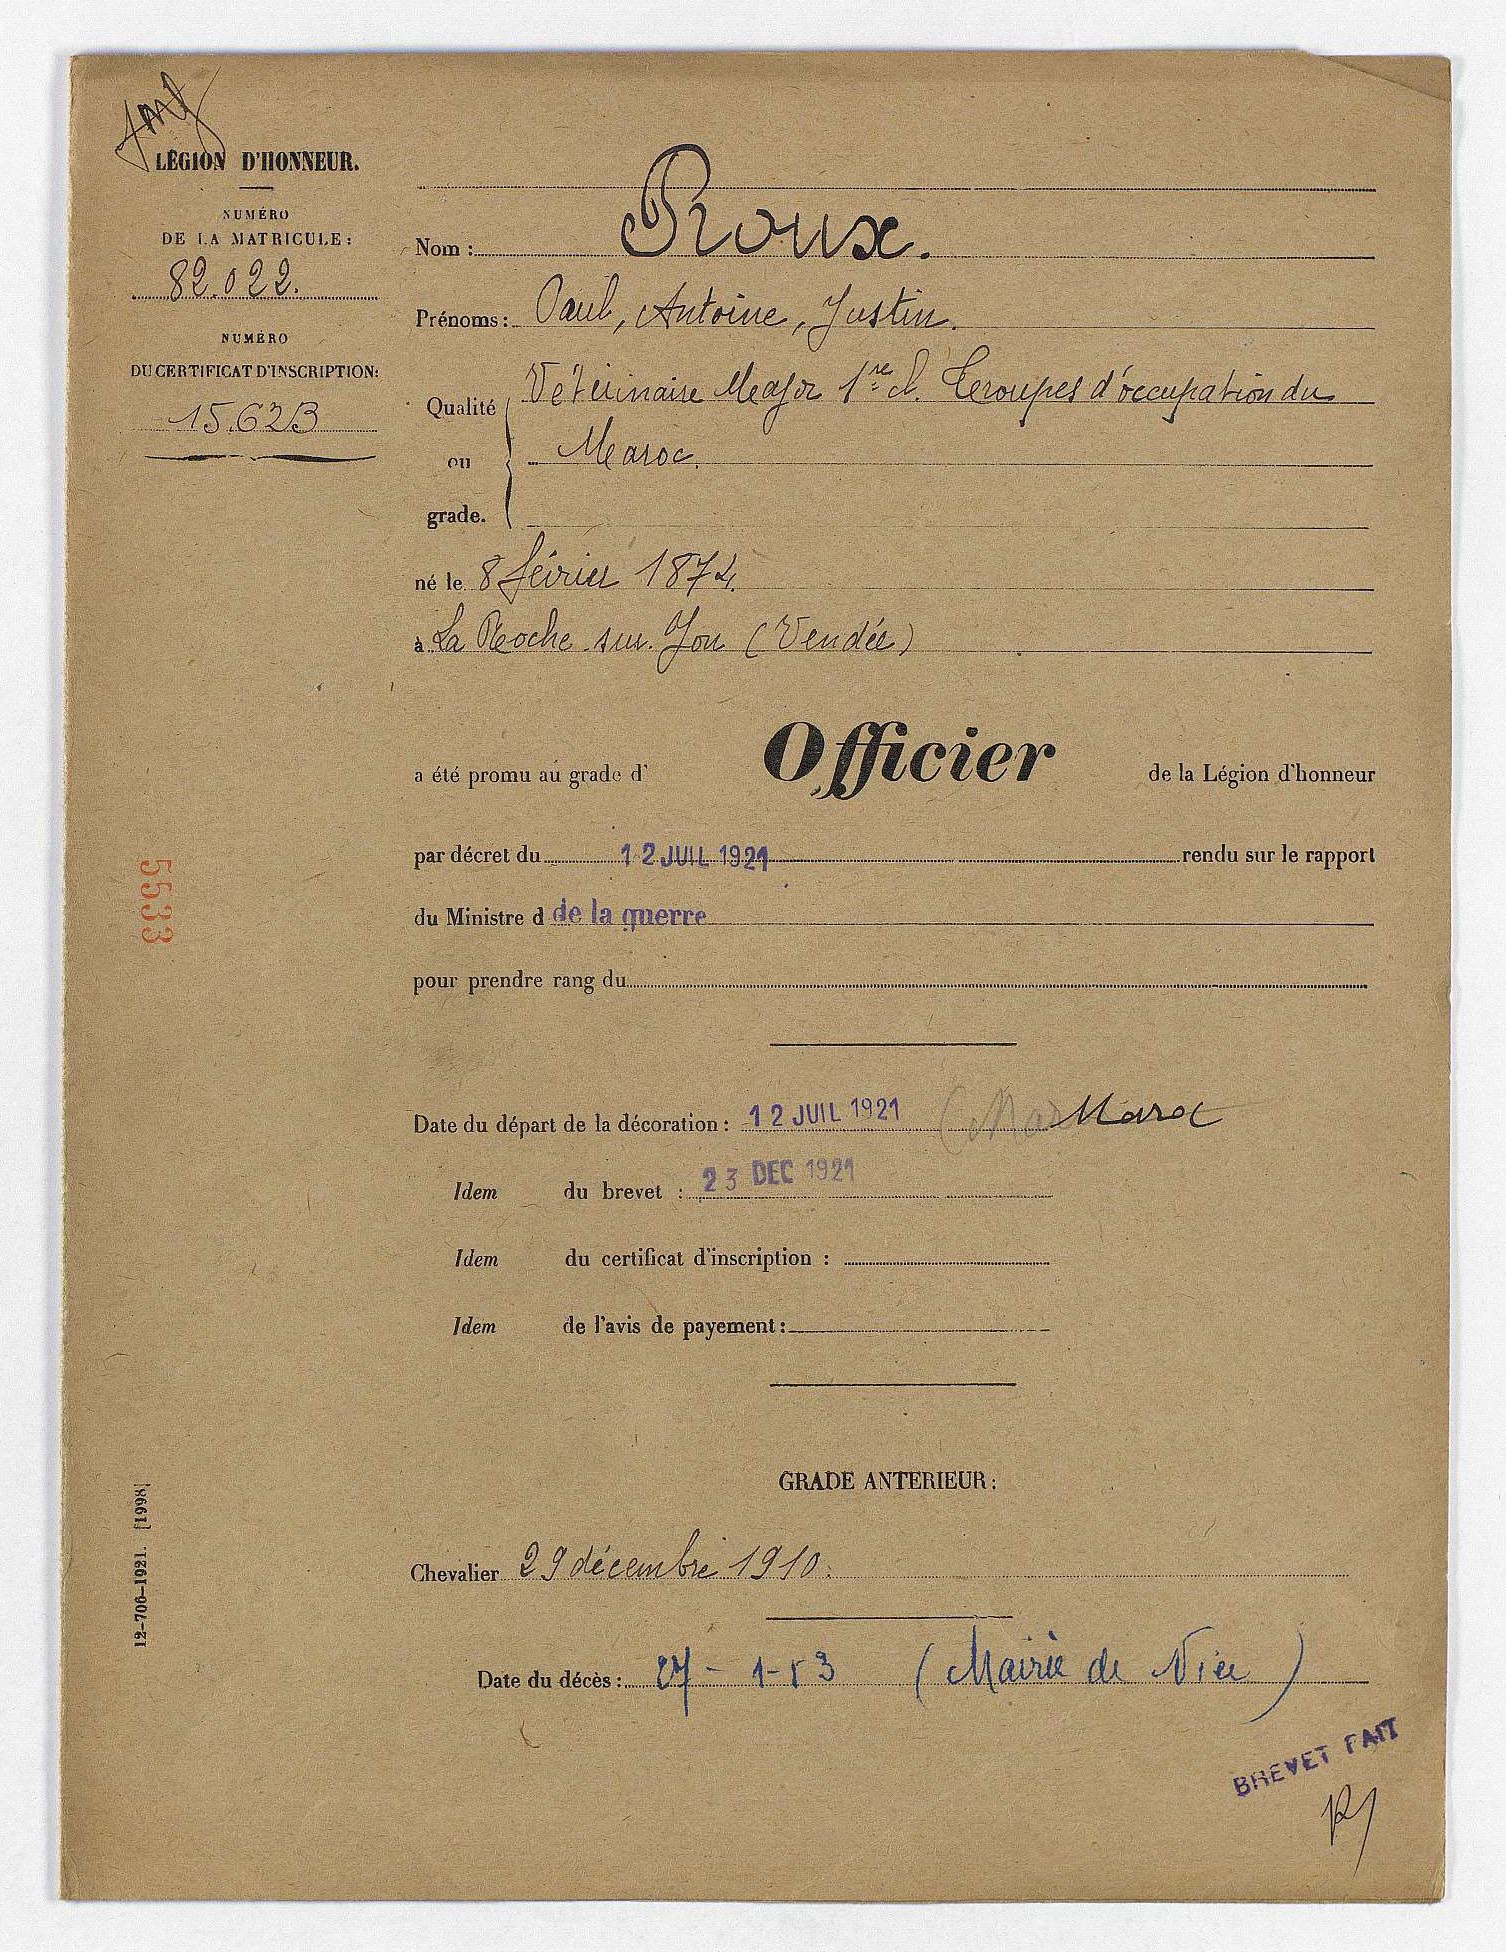 LÉGION D'HONNEUR.
NUMÉRO
DE LA MATRICULE:
82.022.
NUMÉRO
DU CERTIFICAT D'INSCRIPTION:
15.623
Nom : Roux.
Prénoms : Paul, Antoine, Justin.
Qualité ou grade. Vétérinaire Major 1re cl. Troupes d'occupation du
Maroc.
né le 8 février 1874.
à La Roche sur Yon (Vendée)
a été promu au grade d' Officier de la Légion d'honneur
par décret du 12 JUIL 1921 rendu sur le rapport
du Ministre d de la guerre
pour prendre rang du
Date du départ de la décoration : 12 JUIL 1921 (Mar Maroc
Idem du brevet : 23 DEC 1921
Idem du certificat d'inscription :
Idem de l'avis de payement :
GRADE ANTERIEUR :
Chevalier 29 décembre 1910.
Date du décès : 27-1-53 (Mairie de Nice)
BREVET FAIT
5533
12-706-1921. [1998]